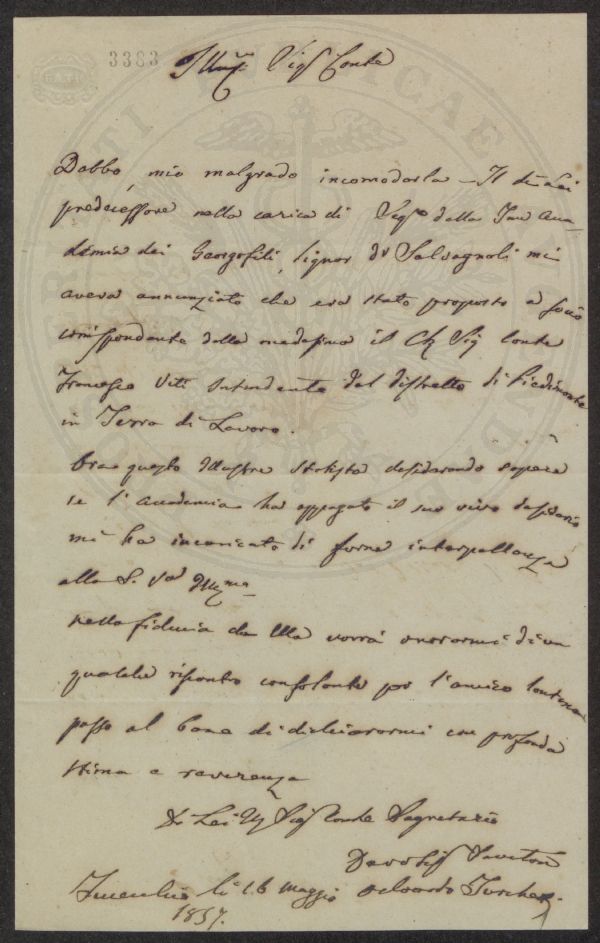 3383
Illmo Sigr Conte
Debbo, mio malgrado incomodarla – Il di Lei
predecessore nella carica di Segro della Imp Aca-
demia dei Georgofili, Signor Dr Salvagnoli mi
aveva annunziato che era stato proposto a socio
corrispondente della medesima il Ch Sig Conte
Francesco Viti Intendente del distretto di Piedimonte
in Terra di Lavoro.
Ora questo illustre statista desiderando sapere
se l'Accademia ha appagato il suo vivo desiderio
mi ha incaricato di farne interpellanza
alla S. Va Illma
Nella fiducia che Ella vorrà onorarmi di un
qualche riscontro confortante per l'amico lontano
passo al bene di dichiararmi con profonda
stima e reverenza
Di Lei Ill Sigr Conte Segretario
Devotiss Servitore
li 16 Maggio
1857.